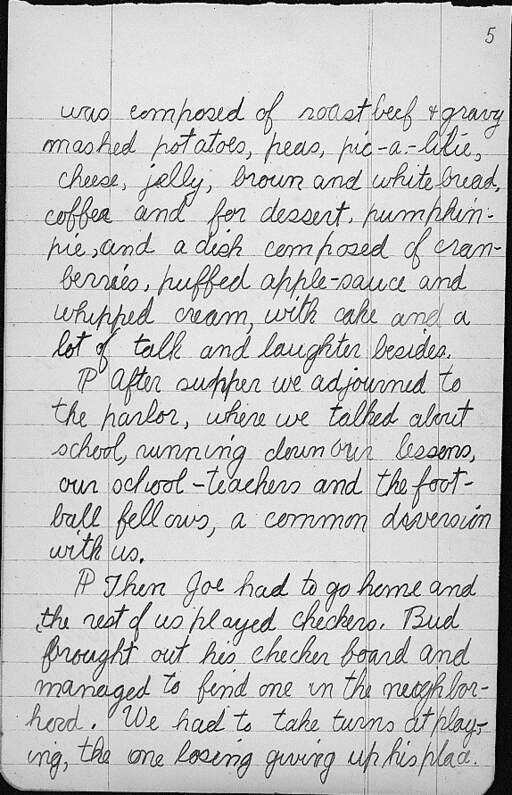 5
was composed of roast beef & gravy
mashed potatoes, peas, pic-a-lilie,
cheese, jelly, brown and white bread,
coffee and for dessert, pumpkin-
pie, and a dish composed of cran-
berries, puffed apple-sauce and
whipped cream, with cake and a
lot of talk and laughter besides.
¶ After supper we adjourned to
the parlor, where we talked about
school, running down our lessons,
our school-teachers and the foot-
ball fellows, a common diversion
with us.
¶ Then Joe had to go home and
the rest of us played checkers. Bud
brought out his checker board and
managed to find one in the neighbor-
hood. We had to take turns at play-
ing, the one losing giving up his place.